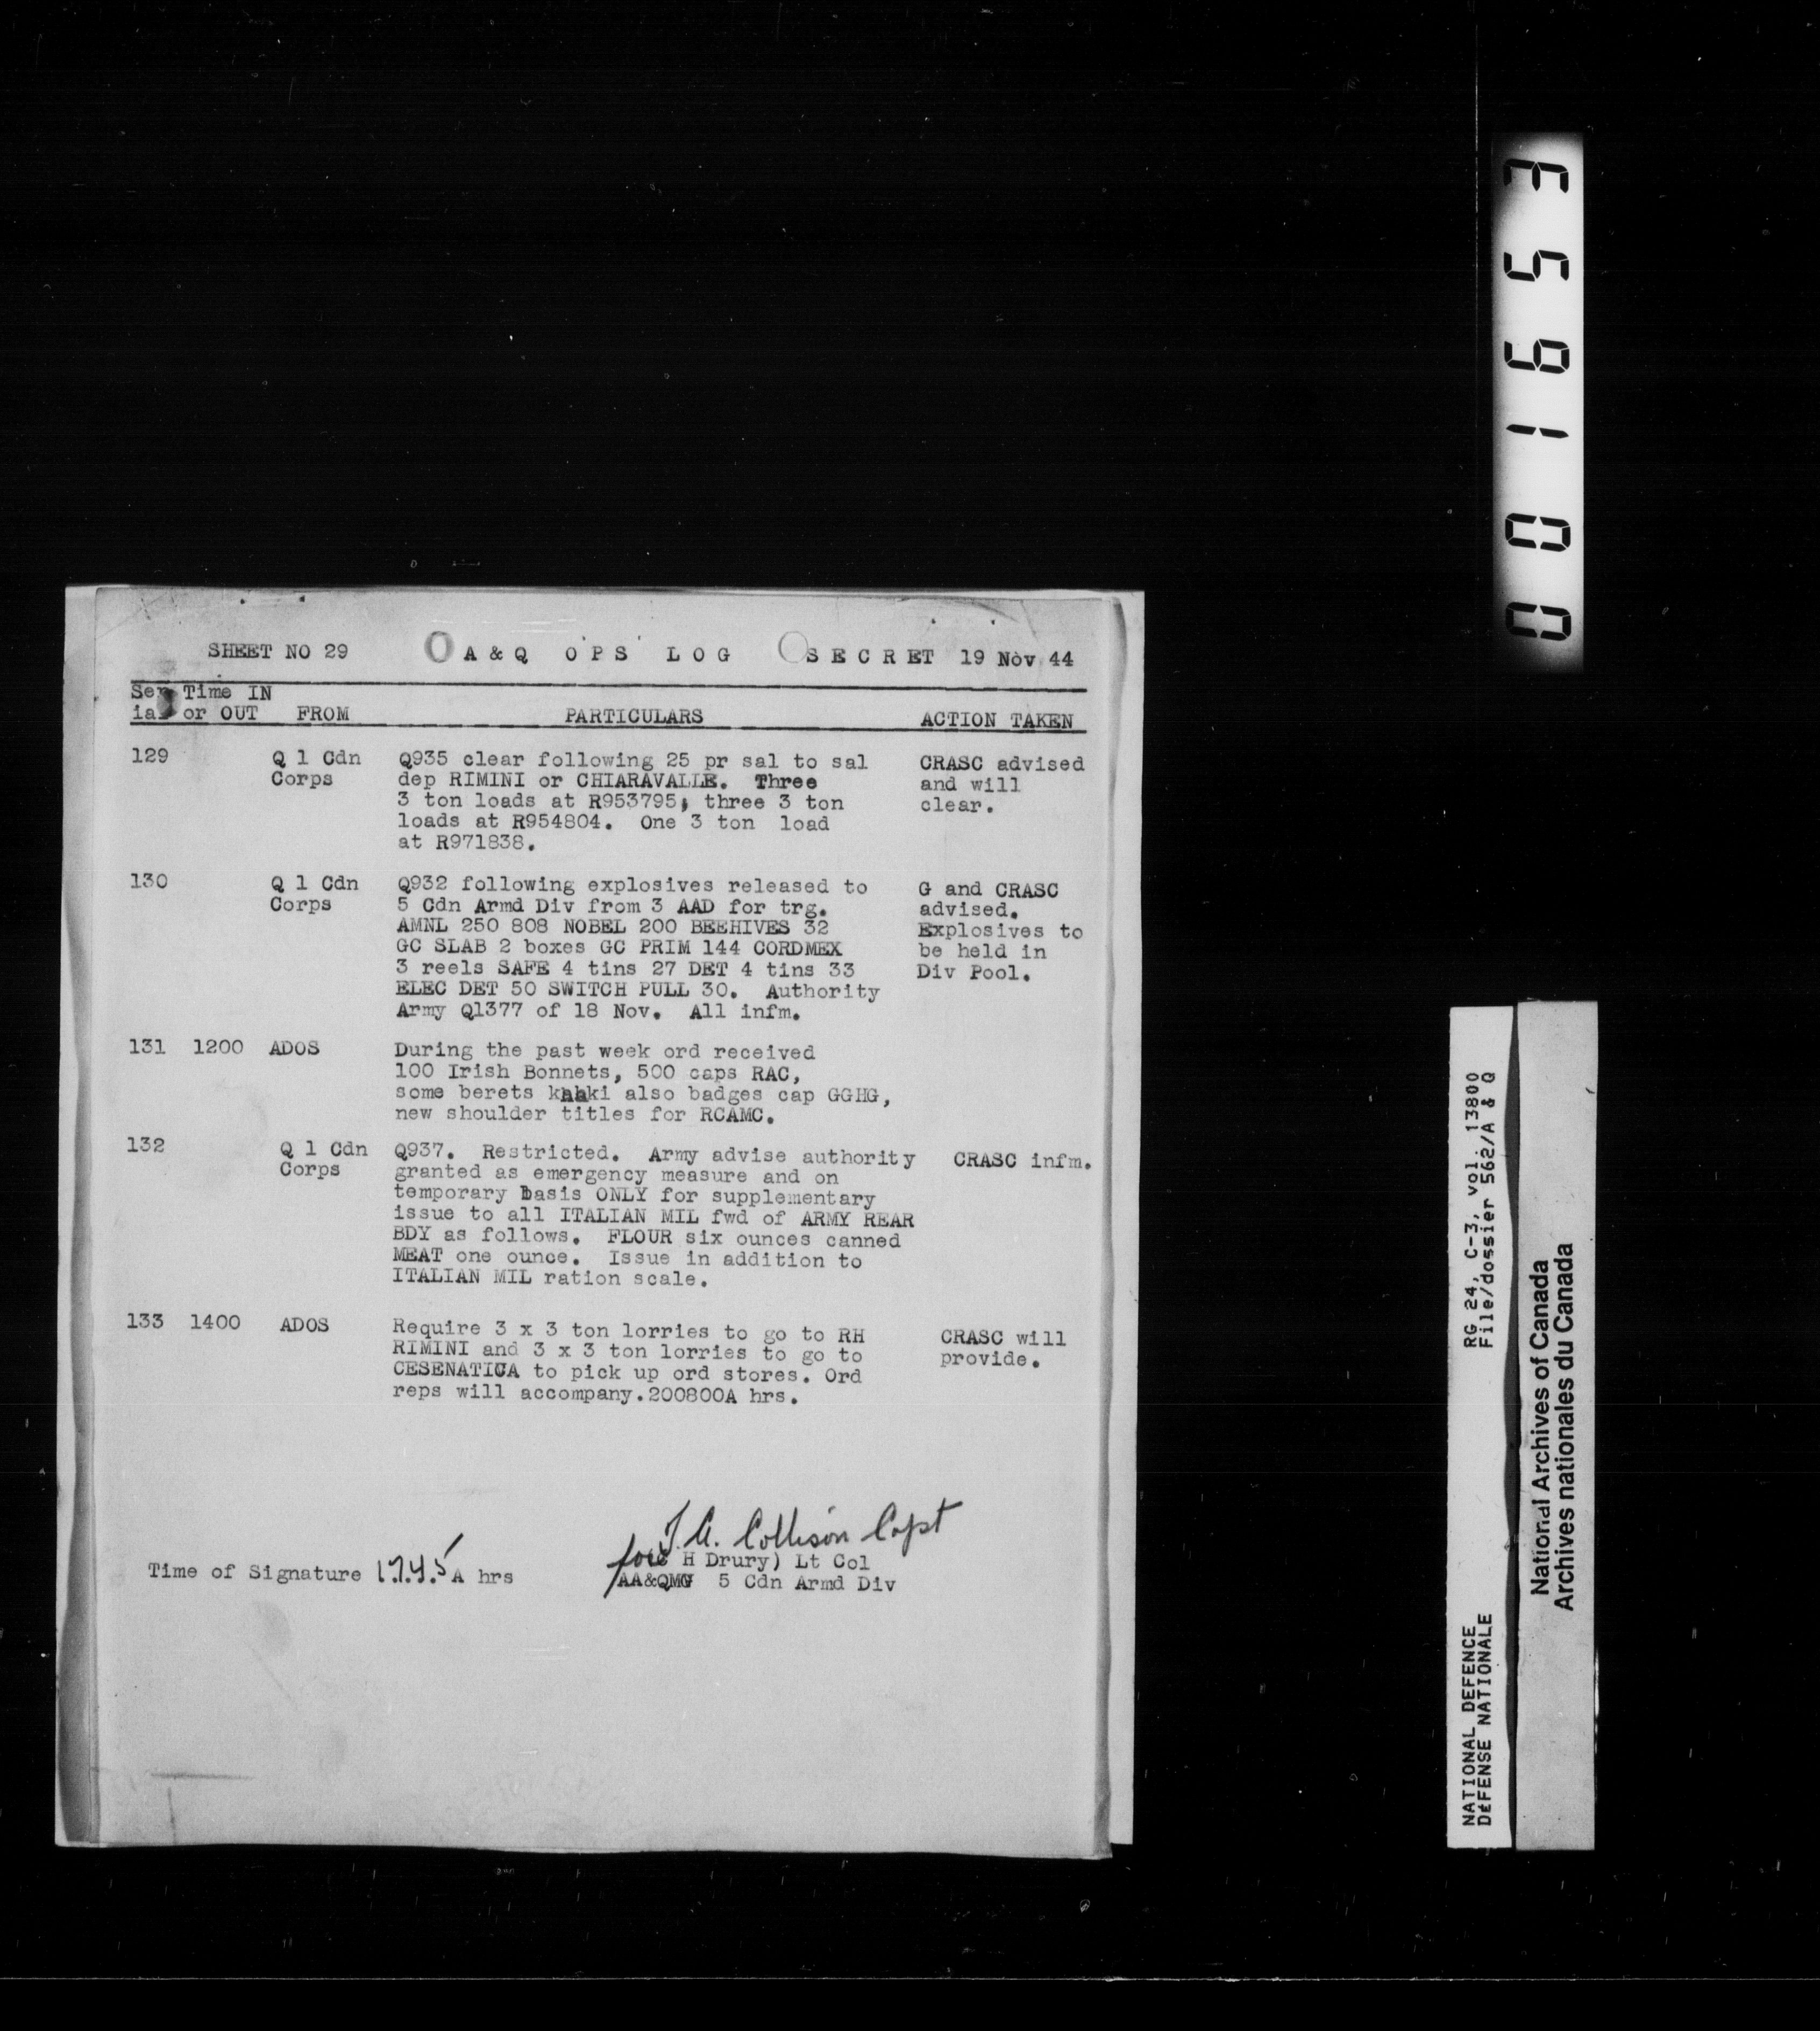 001653
SHEET NO 29 A & Q OPS LOG SECRET 19 Nov 44
Ser Time IN
ia or OUT FROM PARTICULARS ACTION TAKEN
129 Q 1 Cdn Corps
Q935 clear following 25 pr sal to sal
dep RIMINI or CHIARAVALLE. Three
3 ton loads at R953795, three 3 ton
loads at R954804. One 3 ton load
at R971838.
CRASC advised
and will
clear.
130 Q 1 Cdn Corps
Q932 following explosives released to
5 Cdn Armd Div from 3 AAD for trg.
AMNL 250 808 NOBEL 200 BEEHIVES 32
GC SLAB 2 boxes GC PRIM 144 CORDMEX
3 reels SAFE 4 tins 27 DET 4 tins 33
ELEC DET 50 SWITCH PULL 30. Authority
Army Q1377 of 18 Nov. All infm.
G and CRASC
advised.
Explosives to
be held in
Div Pool.
131 1200 ADOS
During the past week ord received
100 Irish Bonnets, 500 caps RAC,
some berets khaki also badges cap GGHG,
new shoulder titles for RCAMC.
132 Q 1 Cdn Corps
Q937. Restricted. Army advise authority
granted as emergency measure and on
temporary basis ONLY for supplementary
issue to all ITALIAN MIL fwd of ARMY REAR
BDY as follows. FLOUR six ounces canned
MEAT one ounce. Issue in addition to
ITALIAN MIL ration scale.
CRASC infm.
133 1400 ADOS
Require 3 x 3 ton lorries to go to RH
RIMINI and 3 x 3 ton lorries to go to
CESENATICA to pick up ord stores. Ord
reps will accompany.200800A hrs.
CRASC will
provide.
Collison Capt
for H Drury) Lt Col
AA&QMG 5 Cdn Armd Div
Time of Signature 1745A hrs
RG 24, C-3, vol. 13800
File/dossier 562/A & Q
NATIONAL DEFENCE
DÉFENSE NATIONALE
National Archives of Canada
Archives nationales du Canada